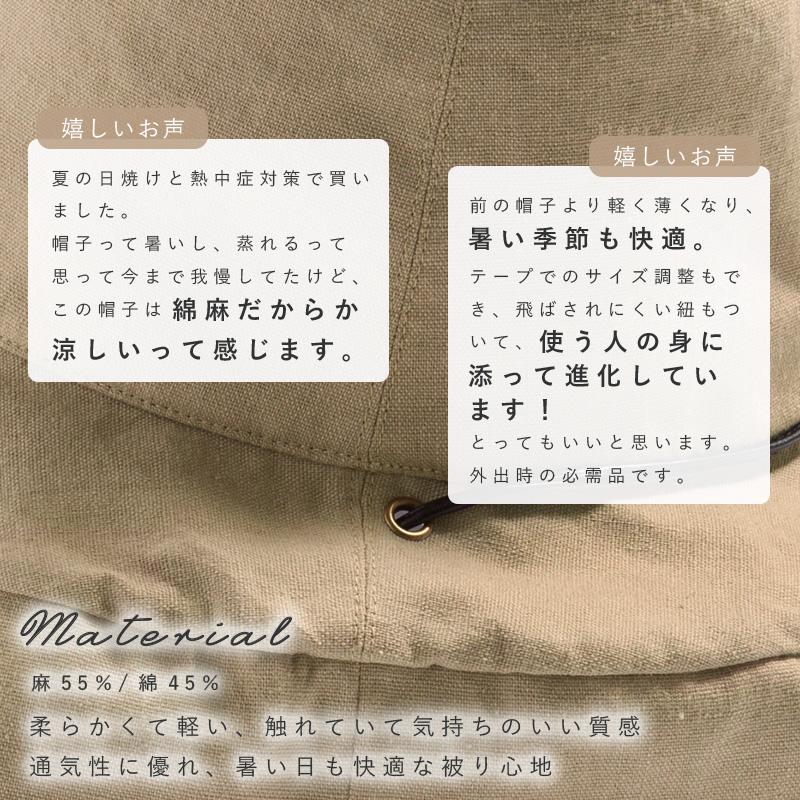 嬉しいお声
夏の日焼けと熱中症対策で買い
ました。
帽子って暑いし、蒸れるって
思って今まで我慢してたけど、
この帽子は 綿麻だからか
涼しいって感じます。
嬉しいお声
前の帽子より軽く薄くなり、
暑い季節も快適。
テープでのサイズ調整もで
き、飛ばされにくい紐もつ
いて、使う人の身に
添って進化してい
ます！
とってもいいと思います。
外出時の必需品です。
Material
麻 55%/ 綿 45%
柔らかくて軽い、触れていて気持ちのいい質感
通気性に優れ、暑い日も快適な被り心地